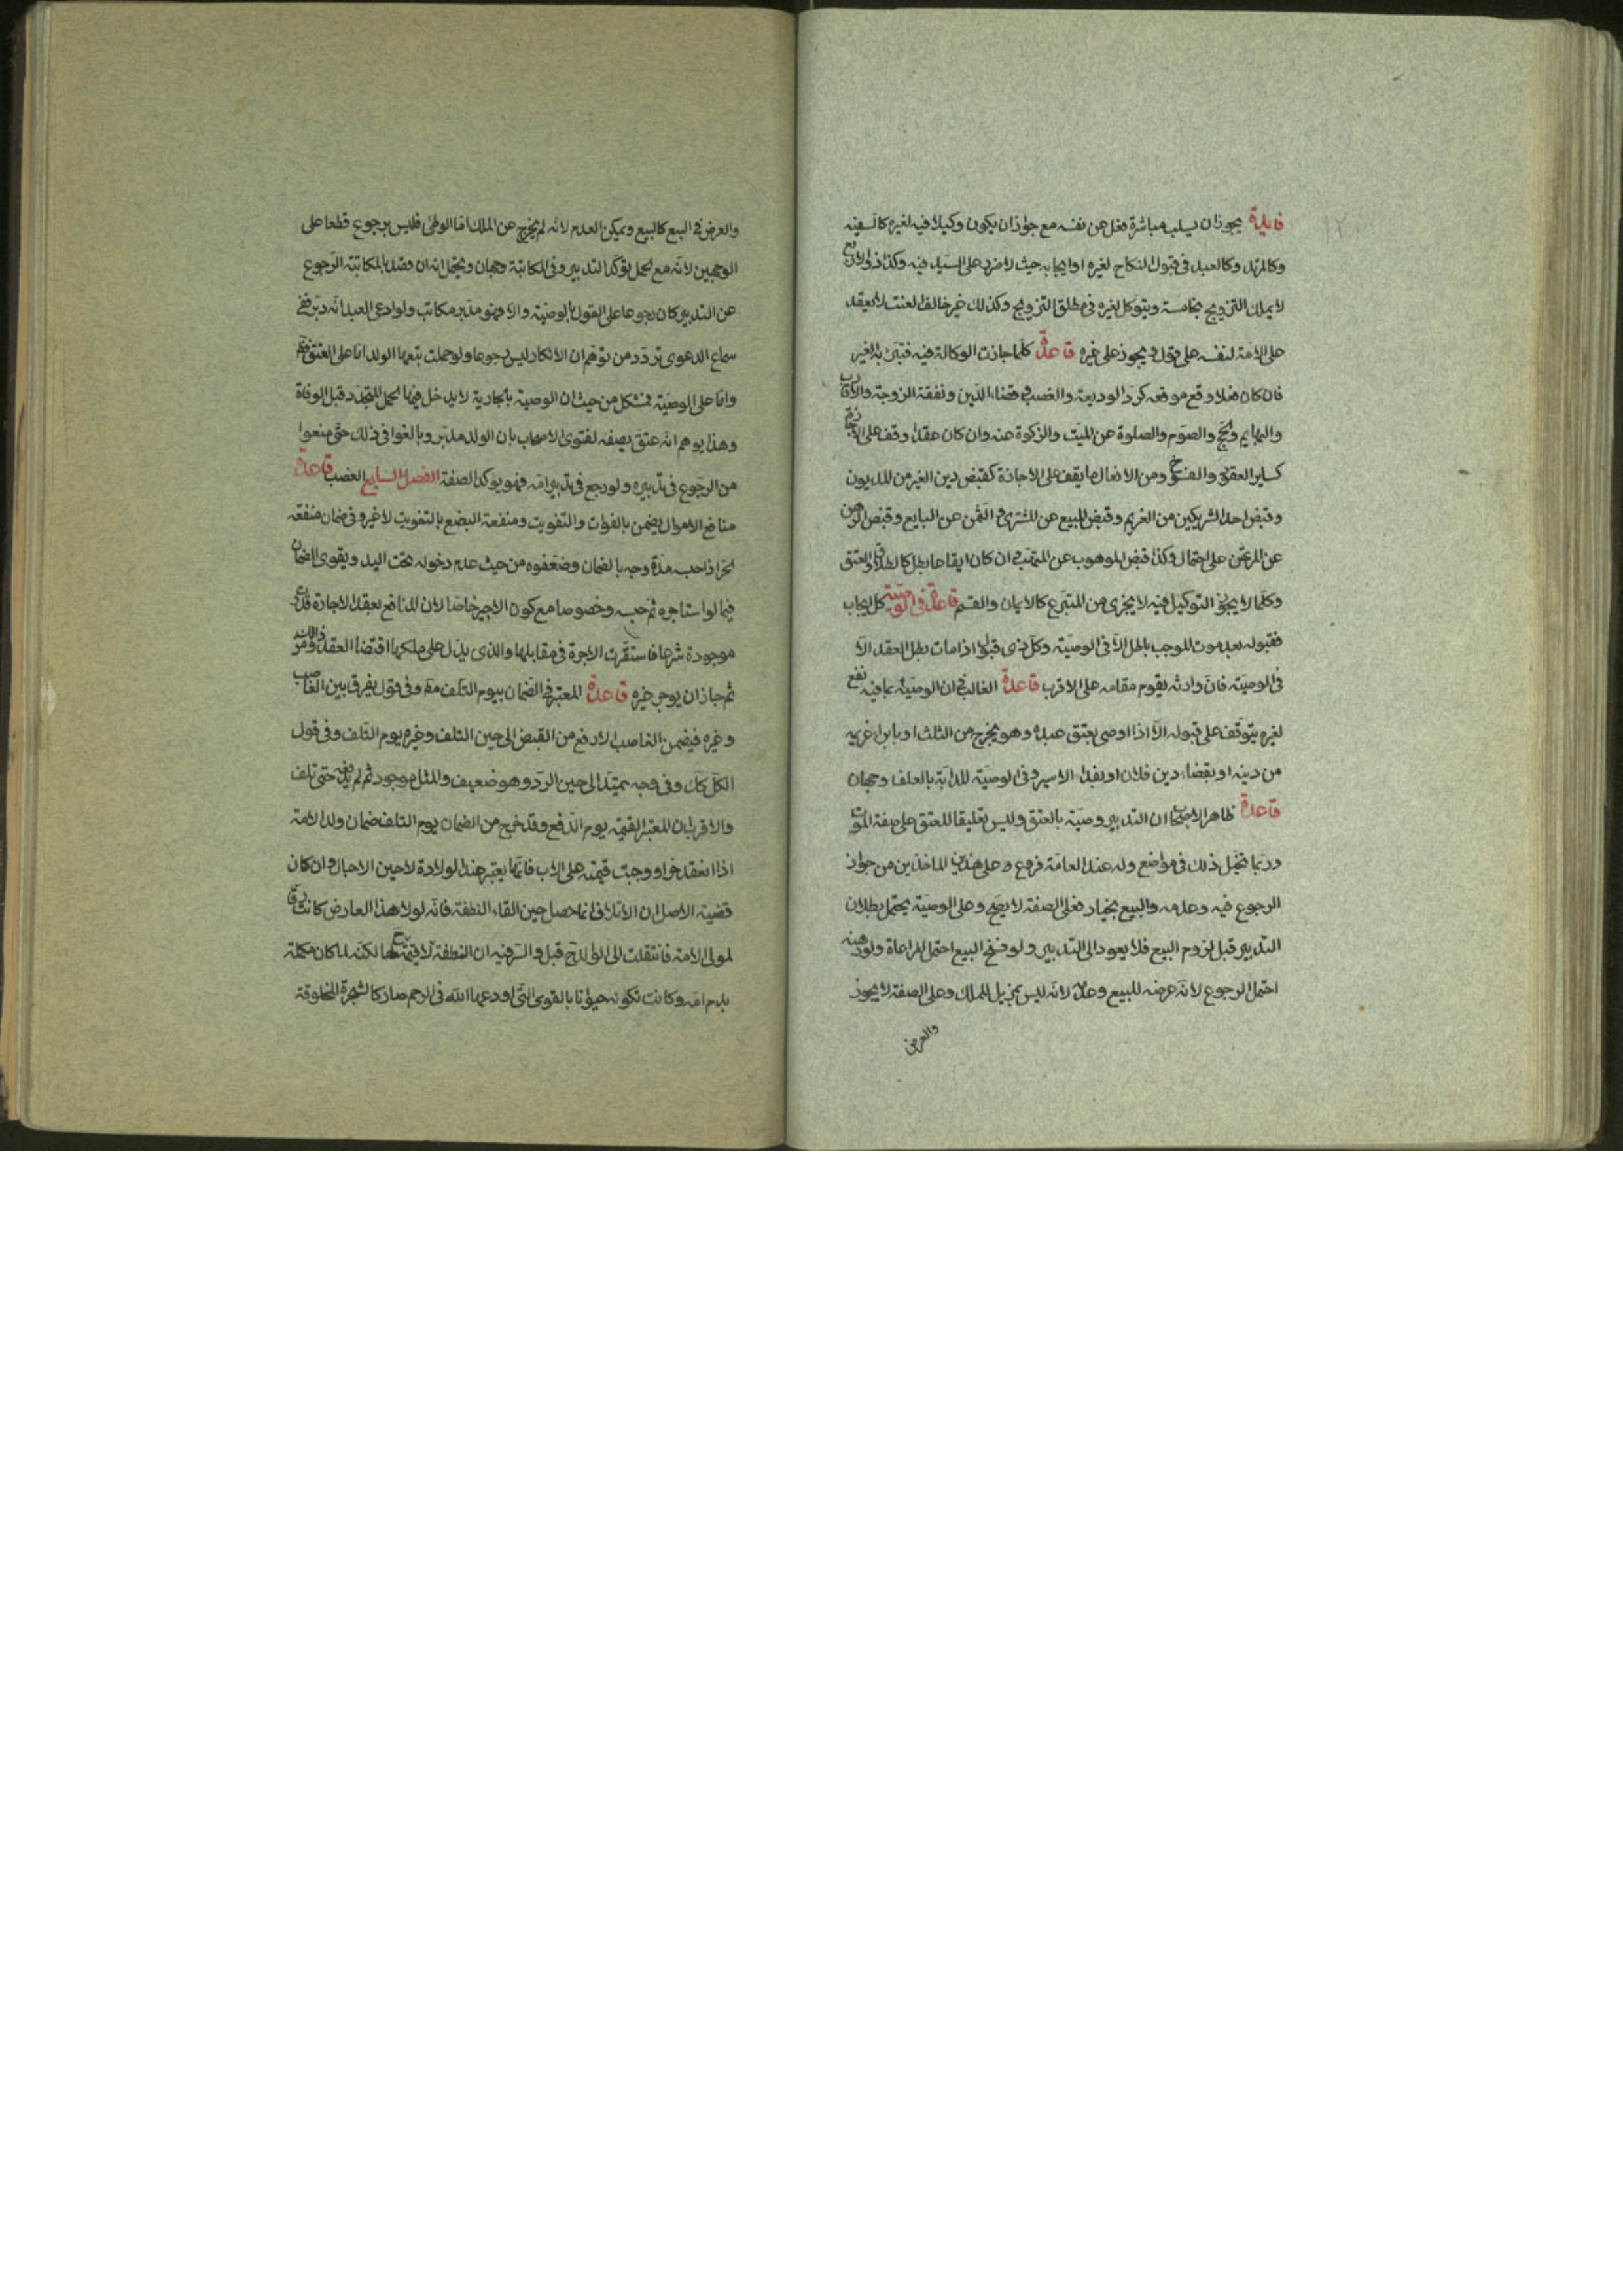 فايدة يجوز ان يسلب مباشرة فعل عن نفسه مع جواز ان يكون وكيلا فيه لغيره كالسفيه
وكالمرتد وكالعبد في قبول النكاح لغيره او ايجابه حيث لا ضرر على السيد فيه وكذا ذو الاربع
لا يملك التزويج بخامسة ويتوكل لغيره في مطلق التزويج وكذلك غير خائف العنت لا يعقد
على الامة لنفسه على قول ويجوز على غيره قاعدة كلما جازت الوكالة فيه فتبرع به الغير
فان كان فعلا وقع موقعه كرد الوديعة والغصب وقضاء الدين ونفقة الزوجة والاقارب
والبهايم والحج والصوم والصلوة عن الميت والزكوة عنه وان كان عقدا وقف على الاجازة
كساير العقود والفسوخ ومن الافعال ما يقف على الاجازة كقبض دين الغير من المديون
وقبض احد الشريكين من الغريم وقبض المبيع عن المشترى والثمن عن البايع وقبض الرهن
عن المرتهن على احتمال وكذا قبض الموهوب عن المتهب وان كان ايقاعا بطل كالطلاق والعتق
وكلما لا يجوز التوكيل فيه لا يجزى من المتبرع كالايمان والقسم قاعدة في الوصية كل ايجاب
فقبوله بعد موت الموجب باطل الا في الوصية وكل ذى قبول اذا مات بطل العقد الا
في الوصية فان وارثه يقوم مقامه على الاقرب قاعدة الغالب في ان الوصية بما فيه نفع
لغيره يتوقف على قبوله الا اذا اوصى بعتق عبده وهو يخرج من الثلث او بابراء غريمه
من دينه او بقضاء دين فلان او بفداء الاسير وفي الوصية للدابة بالعلف وجهان
قاعدة ظاهر الاصحاب ان التدبير وصية بالعتق وليس تعليقا للعتق على صفة الموت
وربما تخيل ذلك في مواضع وله عند العامة فروع وعلى هذين الماخذين من جواز
الرجوع فيه وعدمه والبيع بخيار فعلى الصفة لا يصح وعلى الوصية يحتمل بطلان
التدبير قبل لزوم البيع فلا يعود الى التدبير ولو فسخ البيع احتمل المراعاة ولو رهنه
احتمل الرجوع لانه عرضه للبيع وعدمه لانه ليس بمزيل للملك وعلى الصفة لا يجوز
والعرض
والعرض في البيع كالبيع ويمكن العدم لانه لم يخرج عن الملك اما الوطى فليس برجوع قطعا على
الوجهين لانه مع الحمل يؤكد التدبير وفي المكاتبة وجهان ويحتمل انه ان قصد بالمكاتبة الرجوع
عن التدبير كان رجوعا على القول بالوصية والا فهو مدبر مكاتب ولو ادعى العبد انه دبر ففى
سماع الدعوى تردد من توهم ان الانكار ليس برجوع ولو حملت تبعها الولد اما على العتق فظ
واما على الوصية فمشكل من حيث ان الوصية بالجارية لا يدخل فيها الحمل المتجدد قبل الوفاة
وهذا يوهم انه عتق بصفة لفتوى الاصحاب بان الولد مدبر وبالغوا في ذلك حتى منعوا
من الرجوع في تدبيره ولو رجع في تدبير امه فهو يؤكد الصفة الفصل السابع الغصب قاعدة
منافع الاموال يضمن بالفوات والتفويت ومنفعة البضع بالتفويت لا غير وفي ضمان منفعة
الحر اذا حبسه مدة وجه بالضمان وضعفوه من حيث عدم دخوله تحت اليد ويقوى الضمان
فيما لو استاجره ثم حبسه وخصوصا مع كون الاجير خاصا لان المنافع بعقد الاجارة قدرت
موجودة شرعا فاستقرت الاجرة في مقابلها والذى يدل على ملكها اقتضاء العقد ذلك ومن
ثم جاز ان يوجر غيره قاعدة المعتبر في الضمان بيوم التلف وفي قول يفرق بين الغاصب
وغيره فيضمن الغاصب الارفع من القبض الى حين التلف وغيره يوم التلف وفي قول
الكل كك وفي وجه يمتد الى حين الرد وهو ضعيف والمثل موجود ثم لم يدفعه حتى تلف
والاقرب ان المعتبر القيمة يوم الدفع وقد خرج من الضمان يوم التلف ضمان ولد الامة
اذا انعقد حرا ووجبت قيمته على الاب فانها يعتبر عند الولادة لا حين الاحبال وان كان
قضية الاصل ان الاتلاف انما حصل حين القاء النطفة فانه لولا هذا العارض كانت رقا
لمولى الامة فانتقلت الى الحر قيل والسر فيه ان النطفة لا قيمة لها لكنه لما كان مكملة
بدم امه وكانت تكونه حيوانا بالقوى التى اودعها الله في الرحم صار كالشجرة المخلوقة